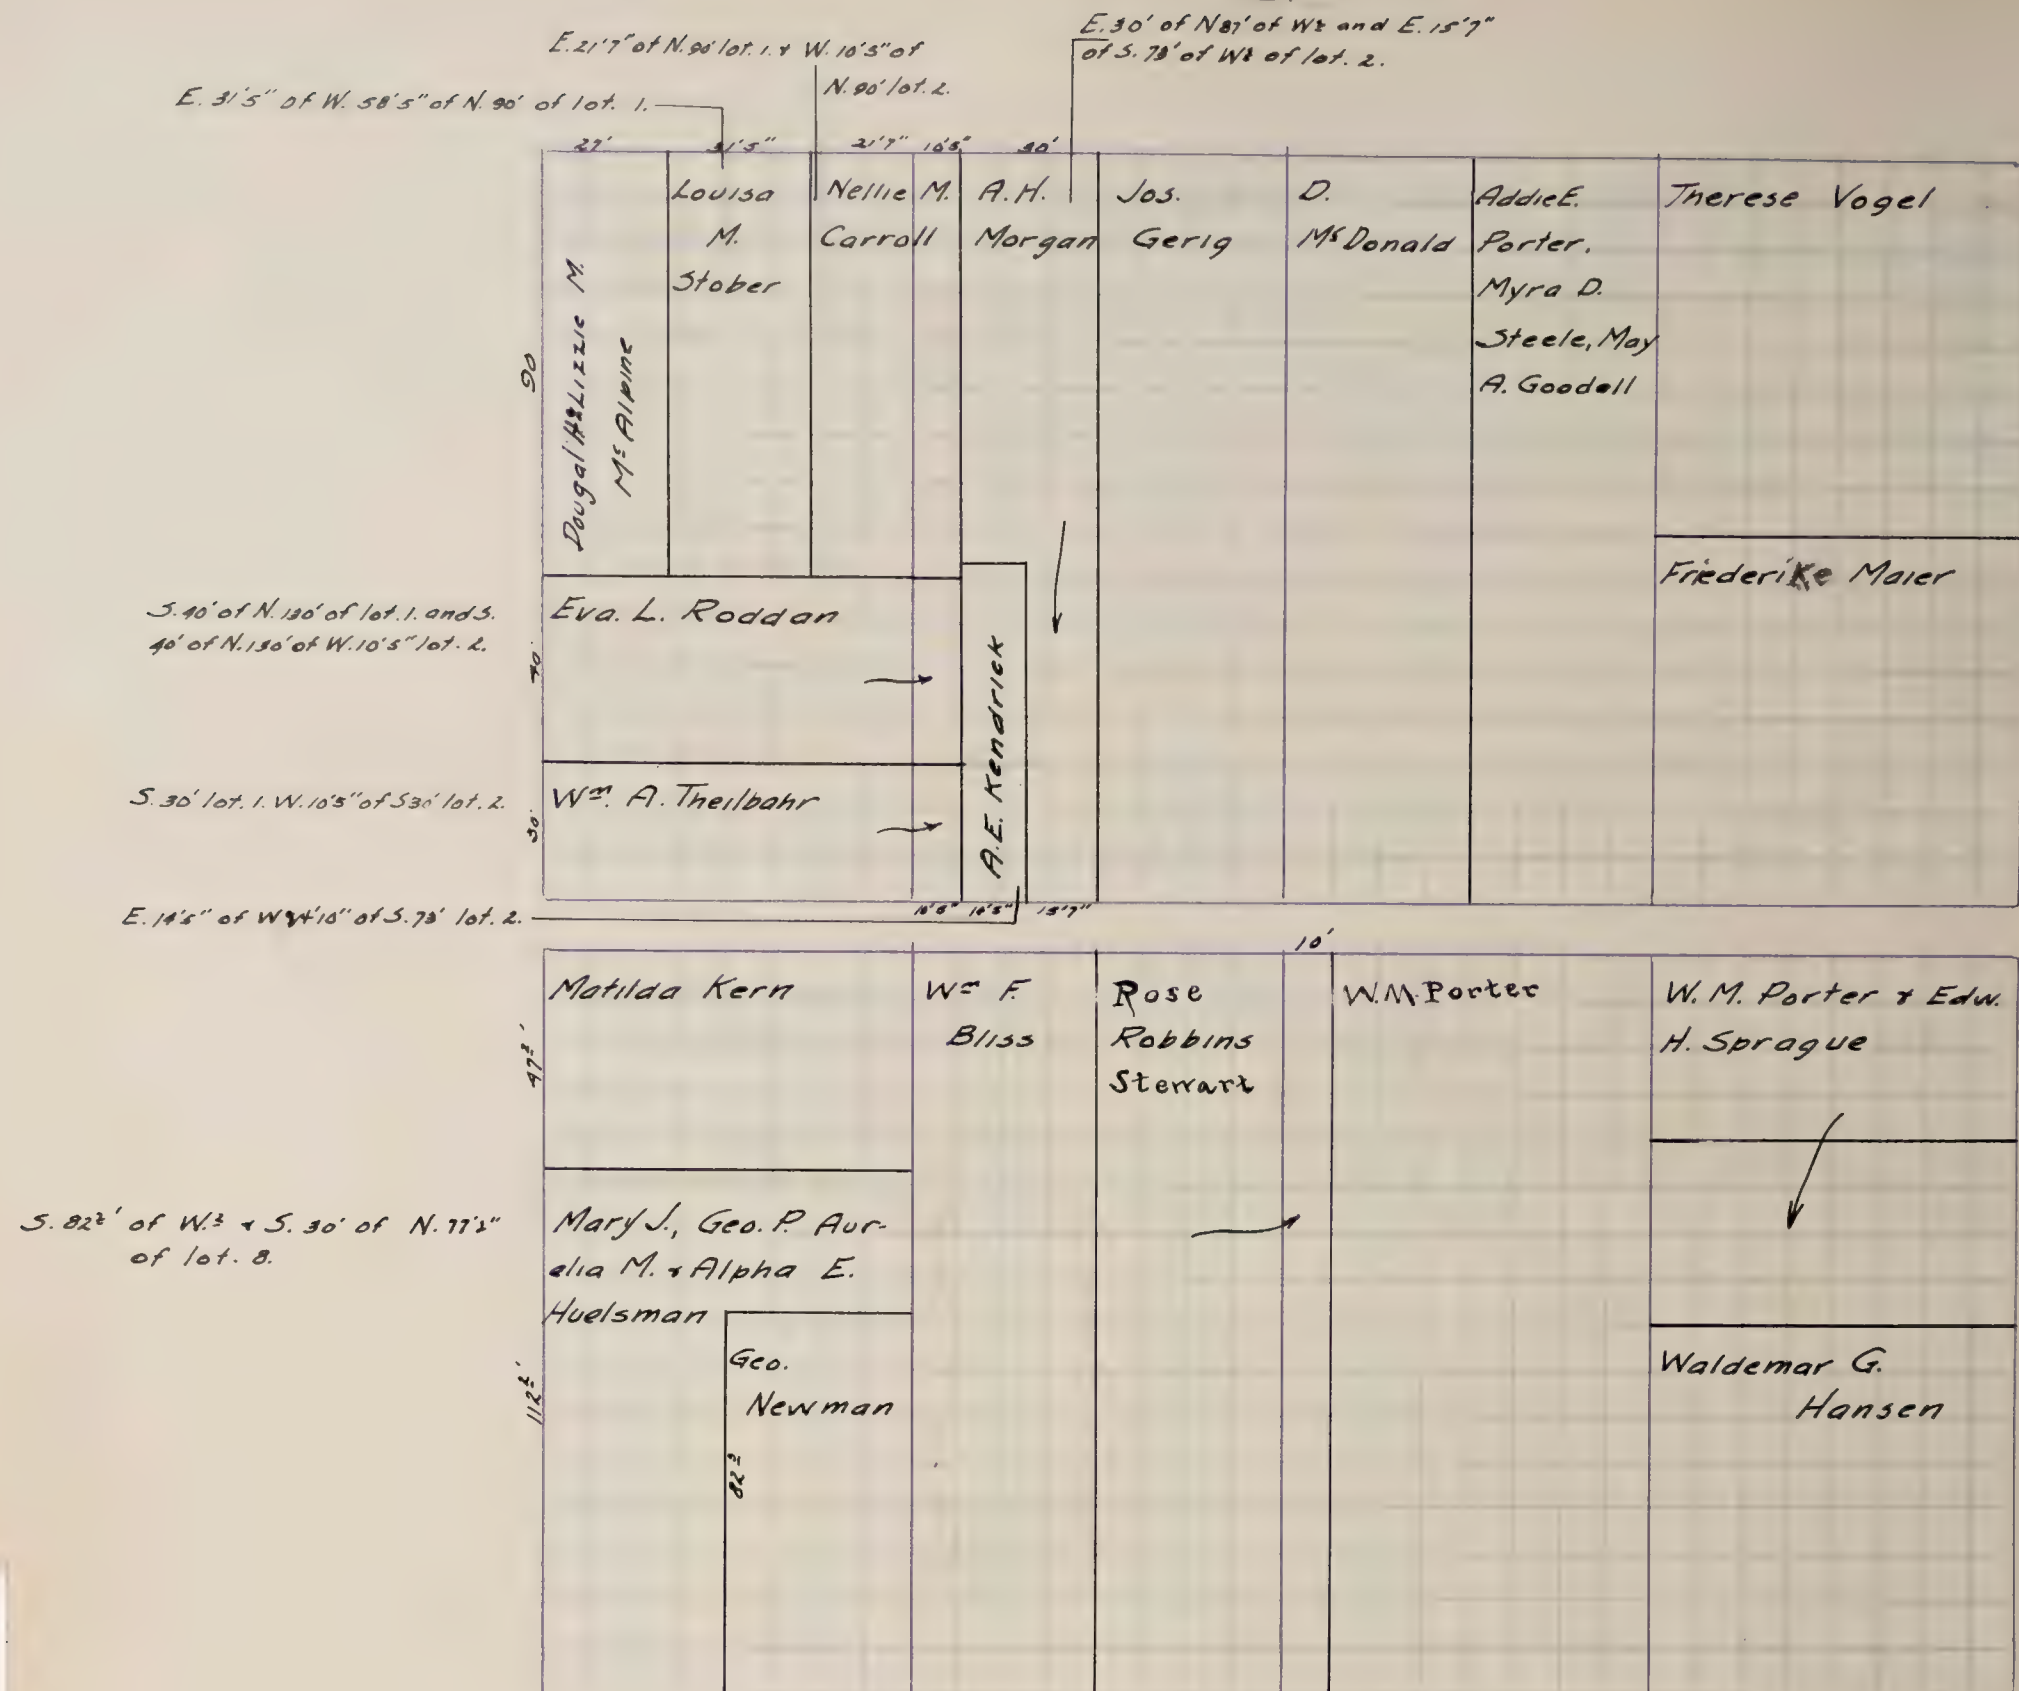 E. 30' of N 87' of W½ and E. 15'7"
of S. 73' of W½ of lot. 2.
E. 21'7" of N. 90' lot. 1. & W. 10'5" of
N. 90' lot. 2.
E. 31'5" of W. 58'5" of N. 90' of lot. 1.
27' 31'5" 21'7" 10'5" 30'
Dougal H & Lizzie M.
McAlpine
Louisa
M.
Stober
Nellie M.
Carroll
A. H.
Morgan
Jos.
Gerig
D.
McDonald
Addie E.
Porter.
Myra D.
Steele, May
A. Goodell
Therese Vogel
90
Friederike Maier
S. 40' of N. 130' of lot. 1. and S.
40' of N. 130' of W. 10'5" lot. 2.
40'
Eva. L. Roddan
A. E. Kendrick
S. 30' lot. 1. W. 10'5" of S 30' lot. 2.
30'
Wm. A. Theilbahr
E. 14'5" of W 24'10" of S. 73' lot. 2.
10'5" 14'5" 15'7"
10'
Matilda Kern
Wm F.
Bliss
Rose
Robbins
Stewart
W. M. Porter
W. M. Porter & Edw.
H. Sprague
47½'
S. 82½' of W.½ & S. 30' of N. 77'½"
of lot. 8.
Mary J., Geo. P. Aur-
elia M. & Alpha E.
Huelsman
112½'
Geo.
Newman
82½
Waldemar G.
Hansen